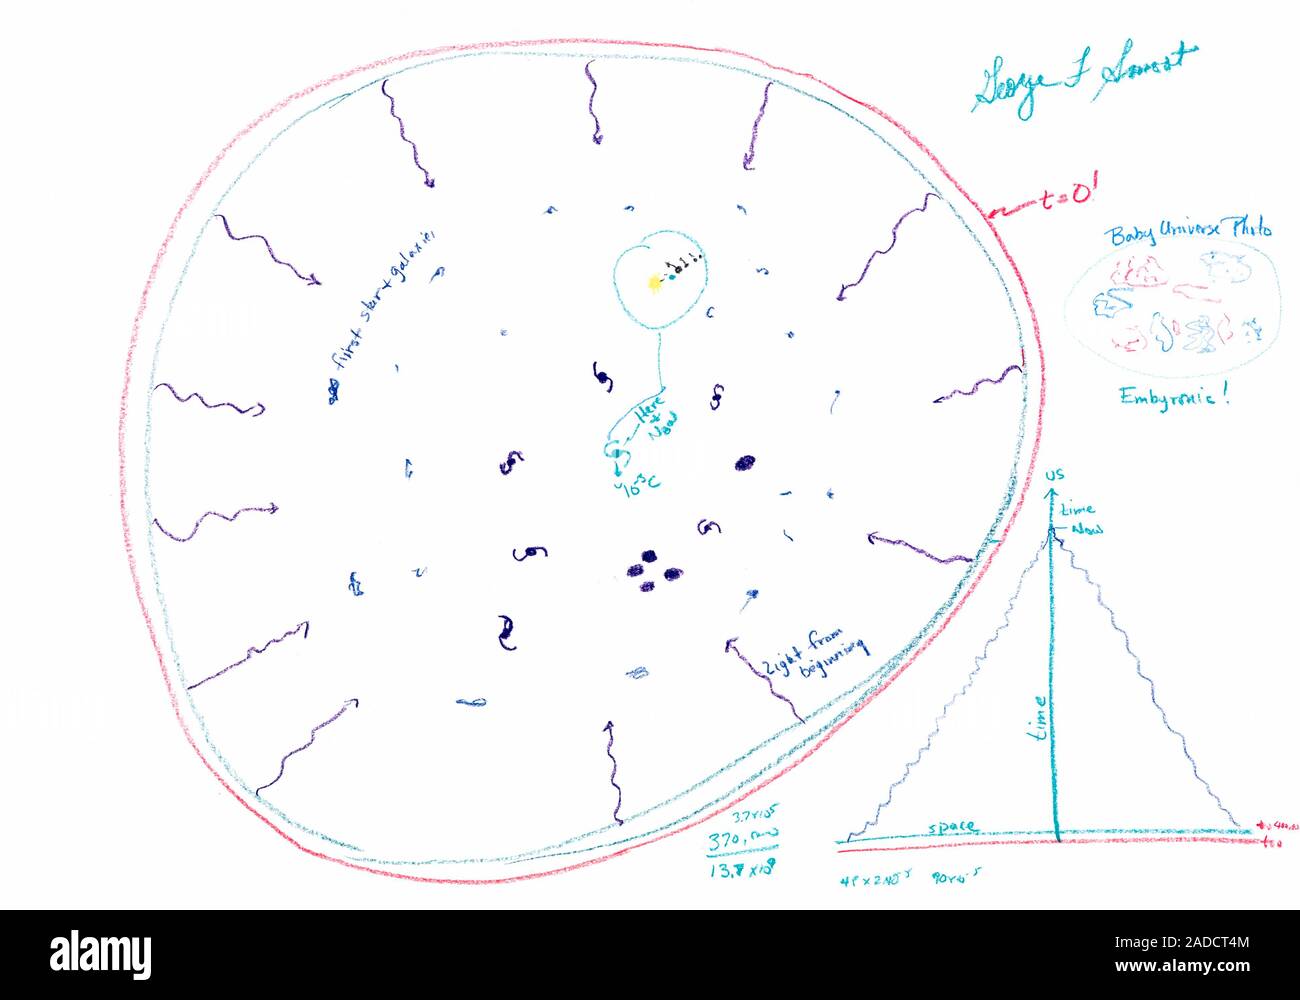 George F Smoot
t=0!
Baby Universe Photo
Embyronic!
first star + galaxies
Here
+
Now
10⁻³C
Light from
beginning
US
time
Now
time
space
t=0
3.7x10⁵
370,000
13.7 x10⁹
alamy
Image ID: 2ADCT4M
www.alamy.com